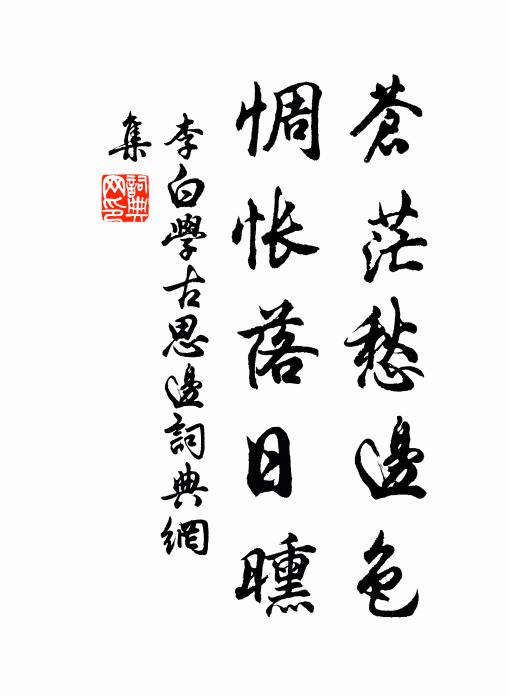 蒼茫愁邊色
惆悵落日曛
李白學古思邊詞典網
集
詞典網印